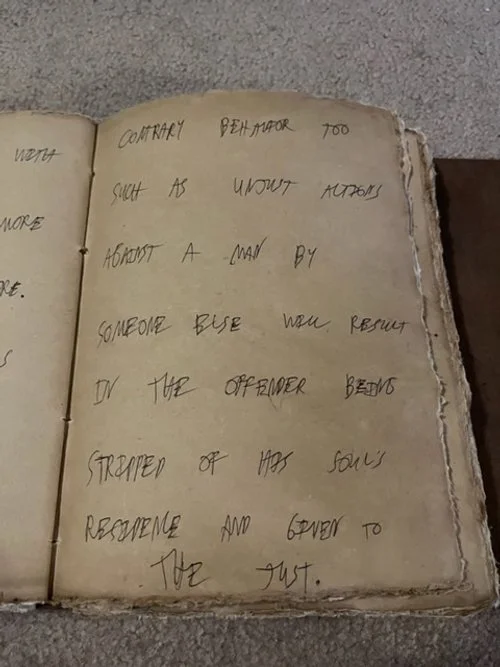 WITH
MORE
RE.
S
CONTRARY BEHAVIOR TOO
SUCH AS UNJUST ACTIONS
AGAINST A MAN BY
SOMEONE ELSE WILL RESULT
IN THE OFFENDER BEING
STRIPPED OF HIS SOUL'S
RESIDENCE AND GIVEN TO
THE JUST.